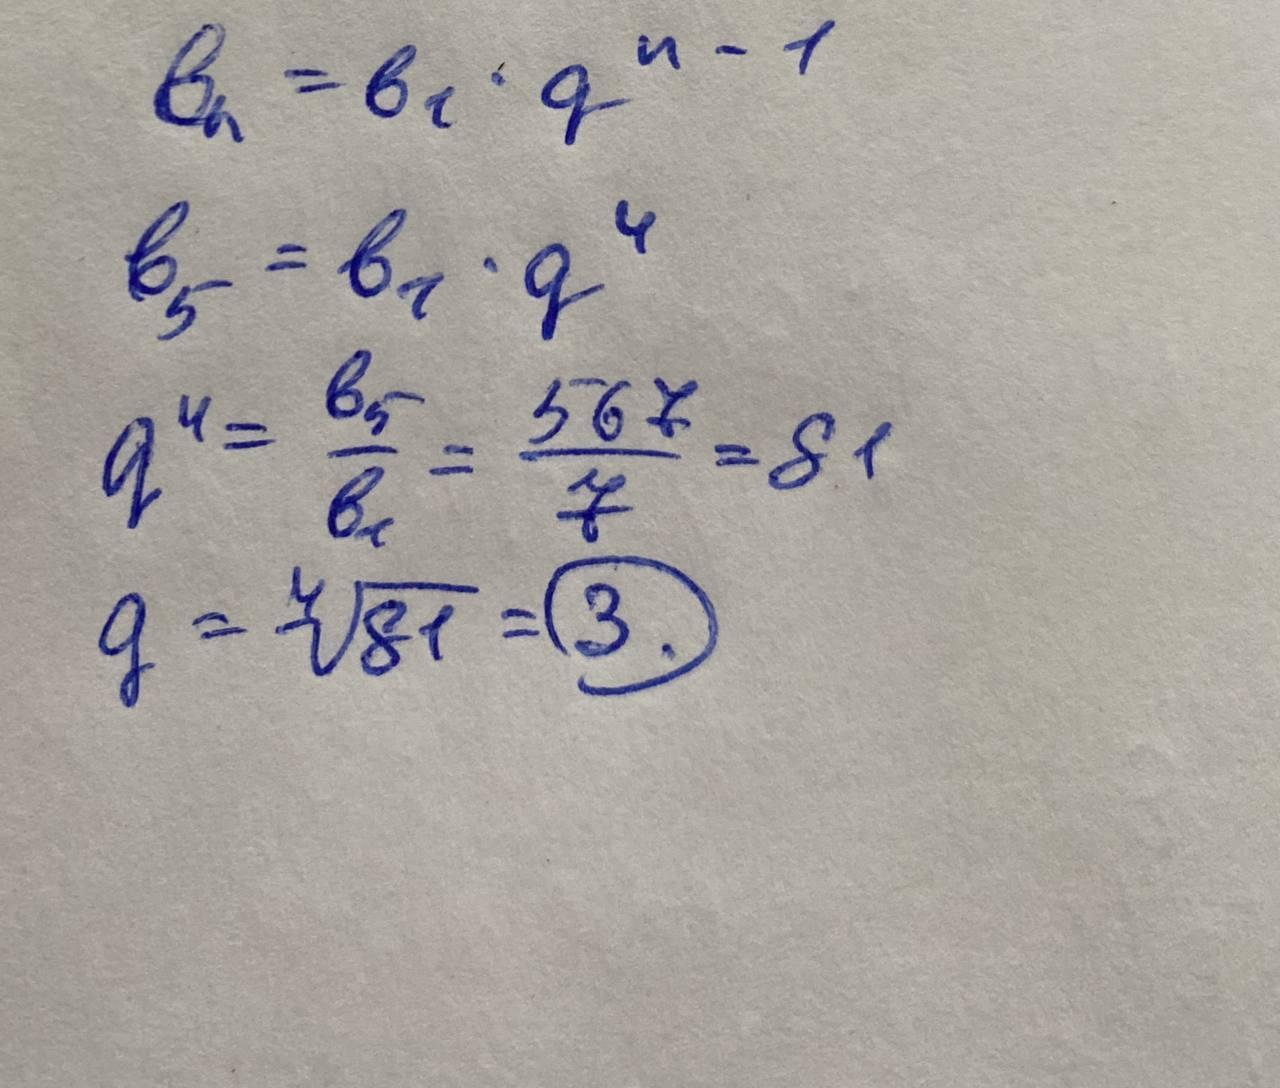 вₙ = в₁ · qⁿ⁻¹
в₅ = в₁ · q⁴
q⁴ = в₅/в₁ = 567/7 = 81
q = ⁴√81 = 3.